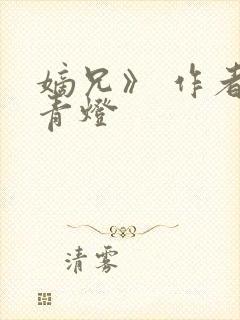 嫡兄》 作者
青燈
清雾